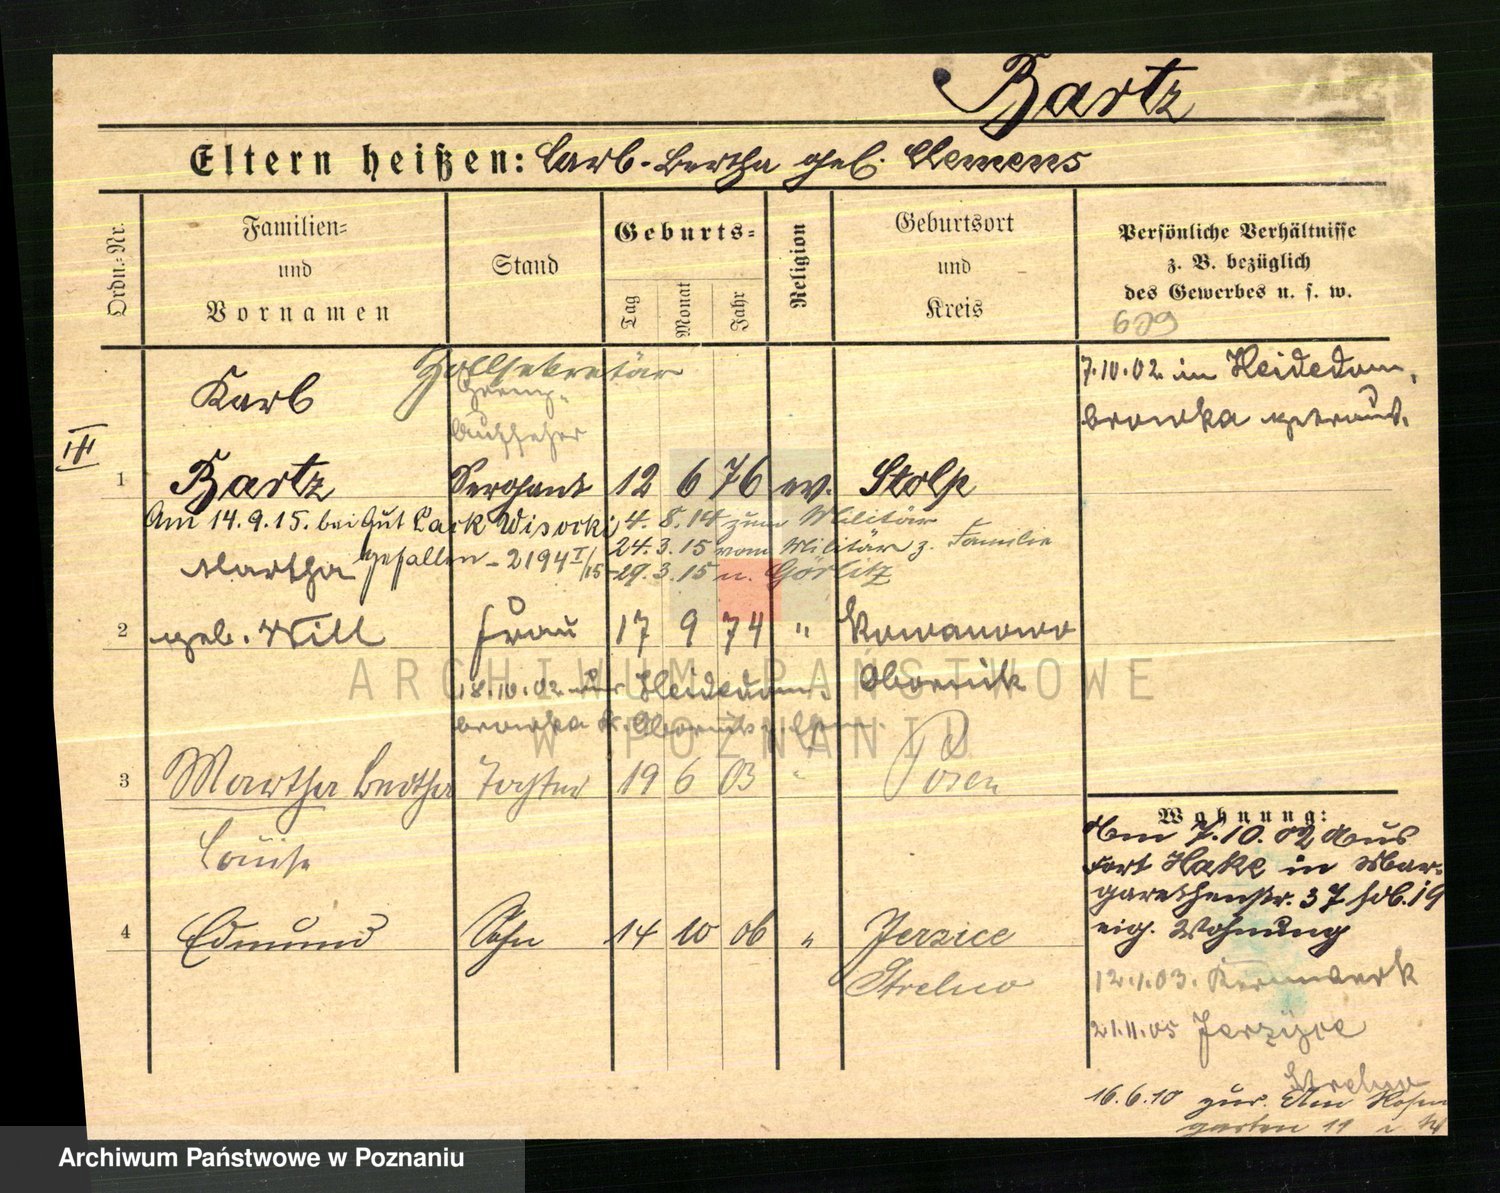 Bartz
Eltern heißen: Carl-Bertha geb. Clemens
Ordn.-Nr.
Familien-
und
Vornamen
Stand
Geburts-
Tag
Monat
Jahr
Religion
Geburtsort
und
Kreis
Persönliche Verhältnisse
z. B. bezüglich
des Gewerbes u. s. w.
609
Zollsekretär
Karl
Grenz-
Aufseher
7.10.02 in Heidedom-
browka getraut.
III
1 Bartz Sergeant 12 6 76 ev. Stolp
Am 14.9.15. bei Gut Lack Wisocki
gefallen - 2194 I/15
4.8.14 zum Militär
24.3.15 vom Militär z. Familie
29.3.15 n. Görlitz
Martha
2 geb. Will Frau 17 9 74 " Romanowo
Obornik
18.10.02 Heidedom-
browka K. Obornik
3 Martha Bertha Tochter 19 6 03 " Posen
Louise
4 Edmund Sohn 14 10 06 " Jerzice
Strelno
Wohnung:
Am 7.10.02 aus
Fort Hake in Mar-
garethenstr. 37 19
eig. Wohnung
12.1.03. Kernwerk
21.11.05 Jerzyce
Strelno
16.6.10 zur. Am Rosen
garten 11
ARCHIWUM PAŃSTWOWE
W POZNANIU
Archiwum Państwowe w Poznaniu